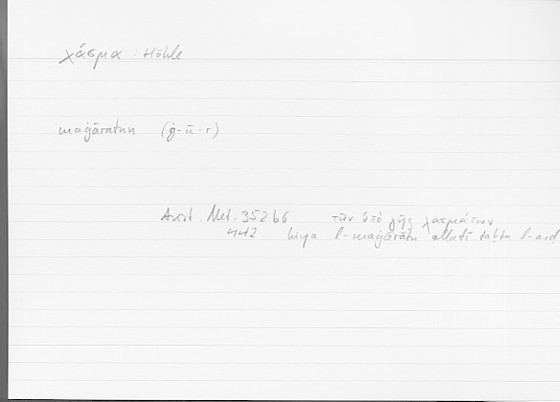 χάσμα : Höhle
maġāratun (ġ-ū-r)
Arist. Met. 352b6 τῶν ὑπὸ γῆς χασμάτων
442 hiya l-maġārātu allatī taḥta l-arḍ